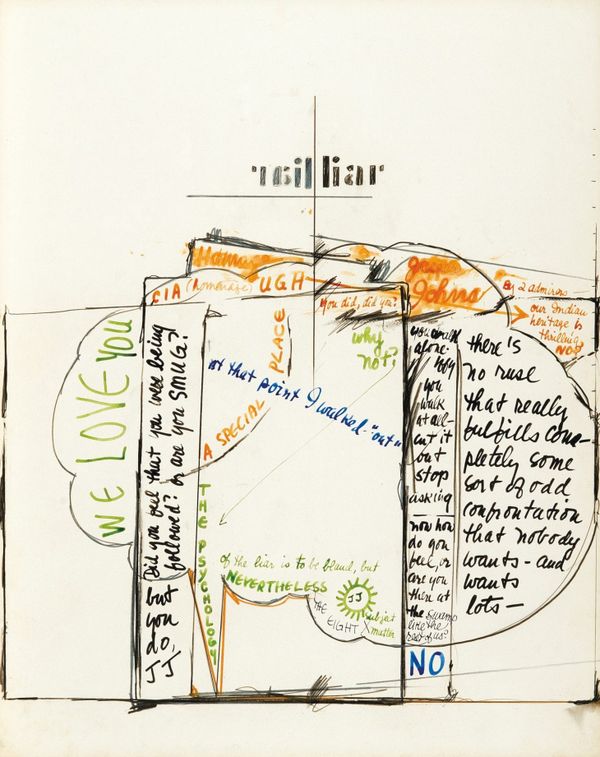 liar liar
Homage
Jasper
Johns
By 2 admirers
our Indian
heritage is
thrilling
NO?
CIA (homerage) UGH
You did, did you?
why
not?
A SPECIAL PLACE
at that point I walked-"out"
WE LOVE YOU
Did you feel that you were being
followed? or are you SMUG?
but
you
do,
JJ
THE PSYCHOLOGY
of the liar is to be bland, but
NEVERTHELESS
JJ
THE
EIGHT
subject
matter
you walk
alone
you
walk
at all-
cut it
out
stop
asking
now how
do you
feel, or
are you
there at
the swamp
like the
rest of us?
NO
there's
no ruse
that really
fulfills com-
pletely some
sort of odd
confrontation
that nobody
wants - and
wants
lots -